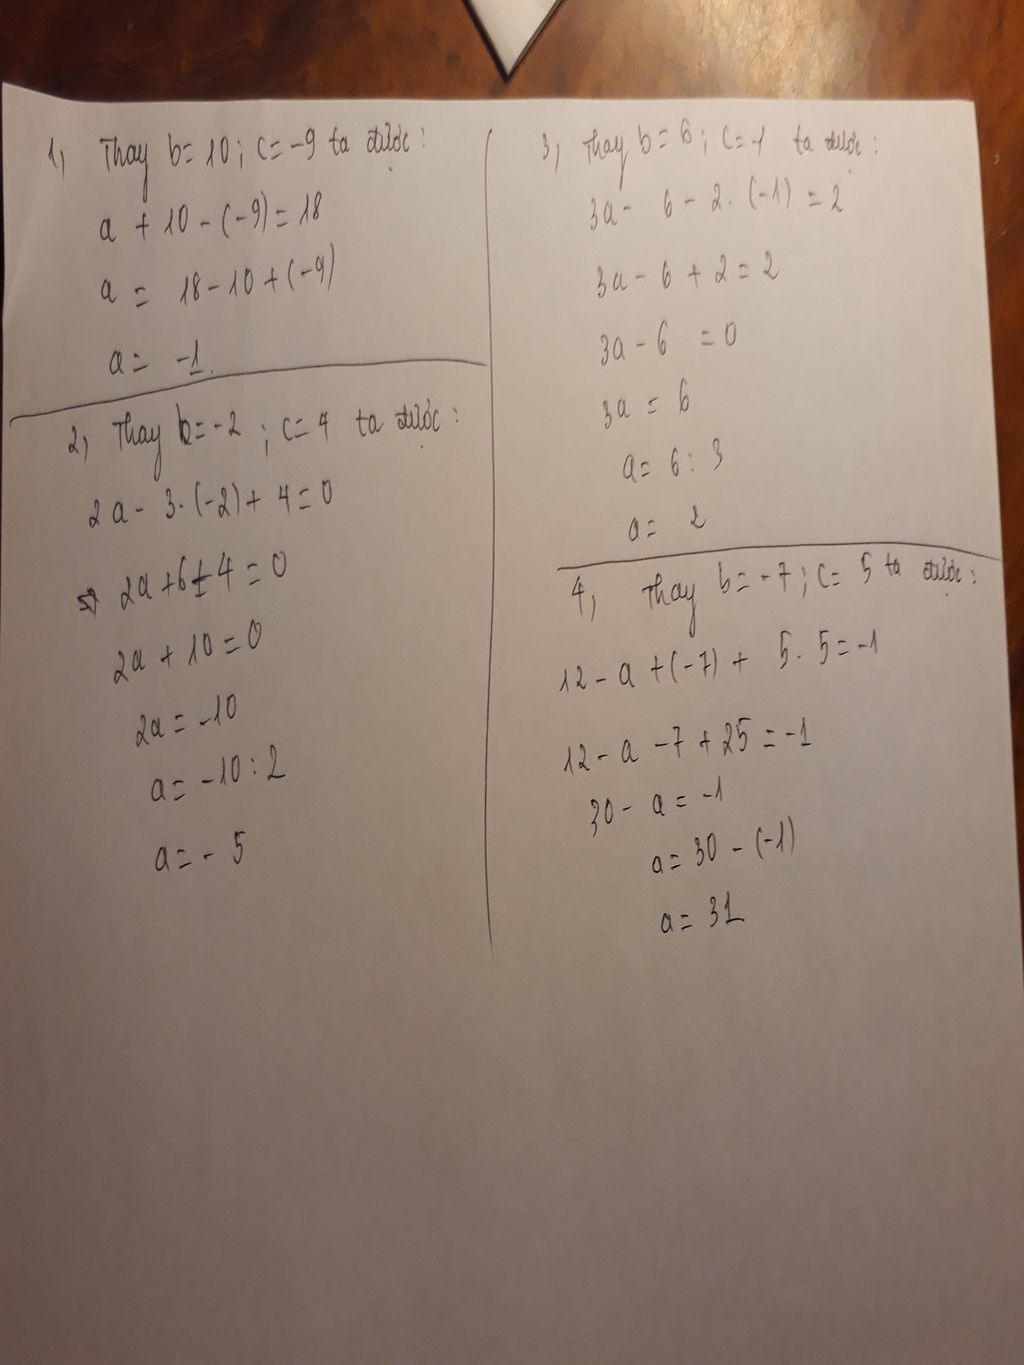 1, Thay b = 10; c = -9 ta được:
a + 10 - (-9) = 18
a = 18 - 10 + (-9)
a = -1.
2, Thay b = -2; c = 4 ta được:
2a - 3·(-2) + 4 = 0
2a + 6 + 4 = 0
2a + 10 = 0
2a = -10
a = -10 : 2
a = - 5
3, Thay b = 6; c = -1 ta được:
3a - 6 - 2. (-1) = 2
3a - 6 + 2 = 2
3a - 6 = 0
3a = 6
a = 6 : 3
a = 2
4, Thay b = -7; c = 5 ta được:
12 - a + (-7) + 5. 5 = -1
12 - a - 7 + 25 = -1
30 - a = -1
a = 30 - (-1)
a = 31